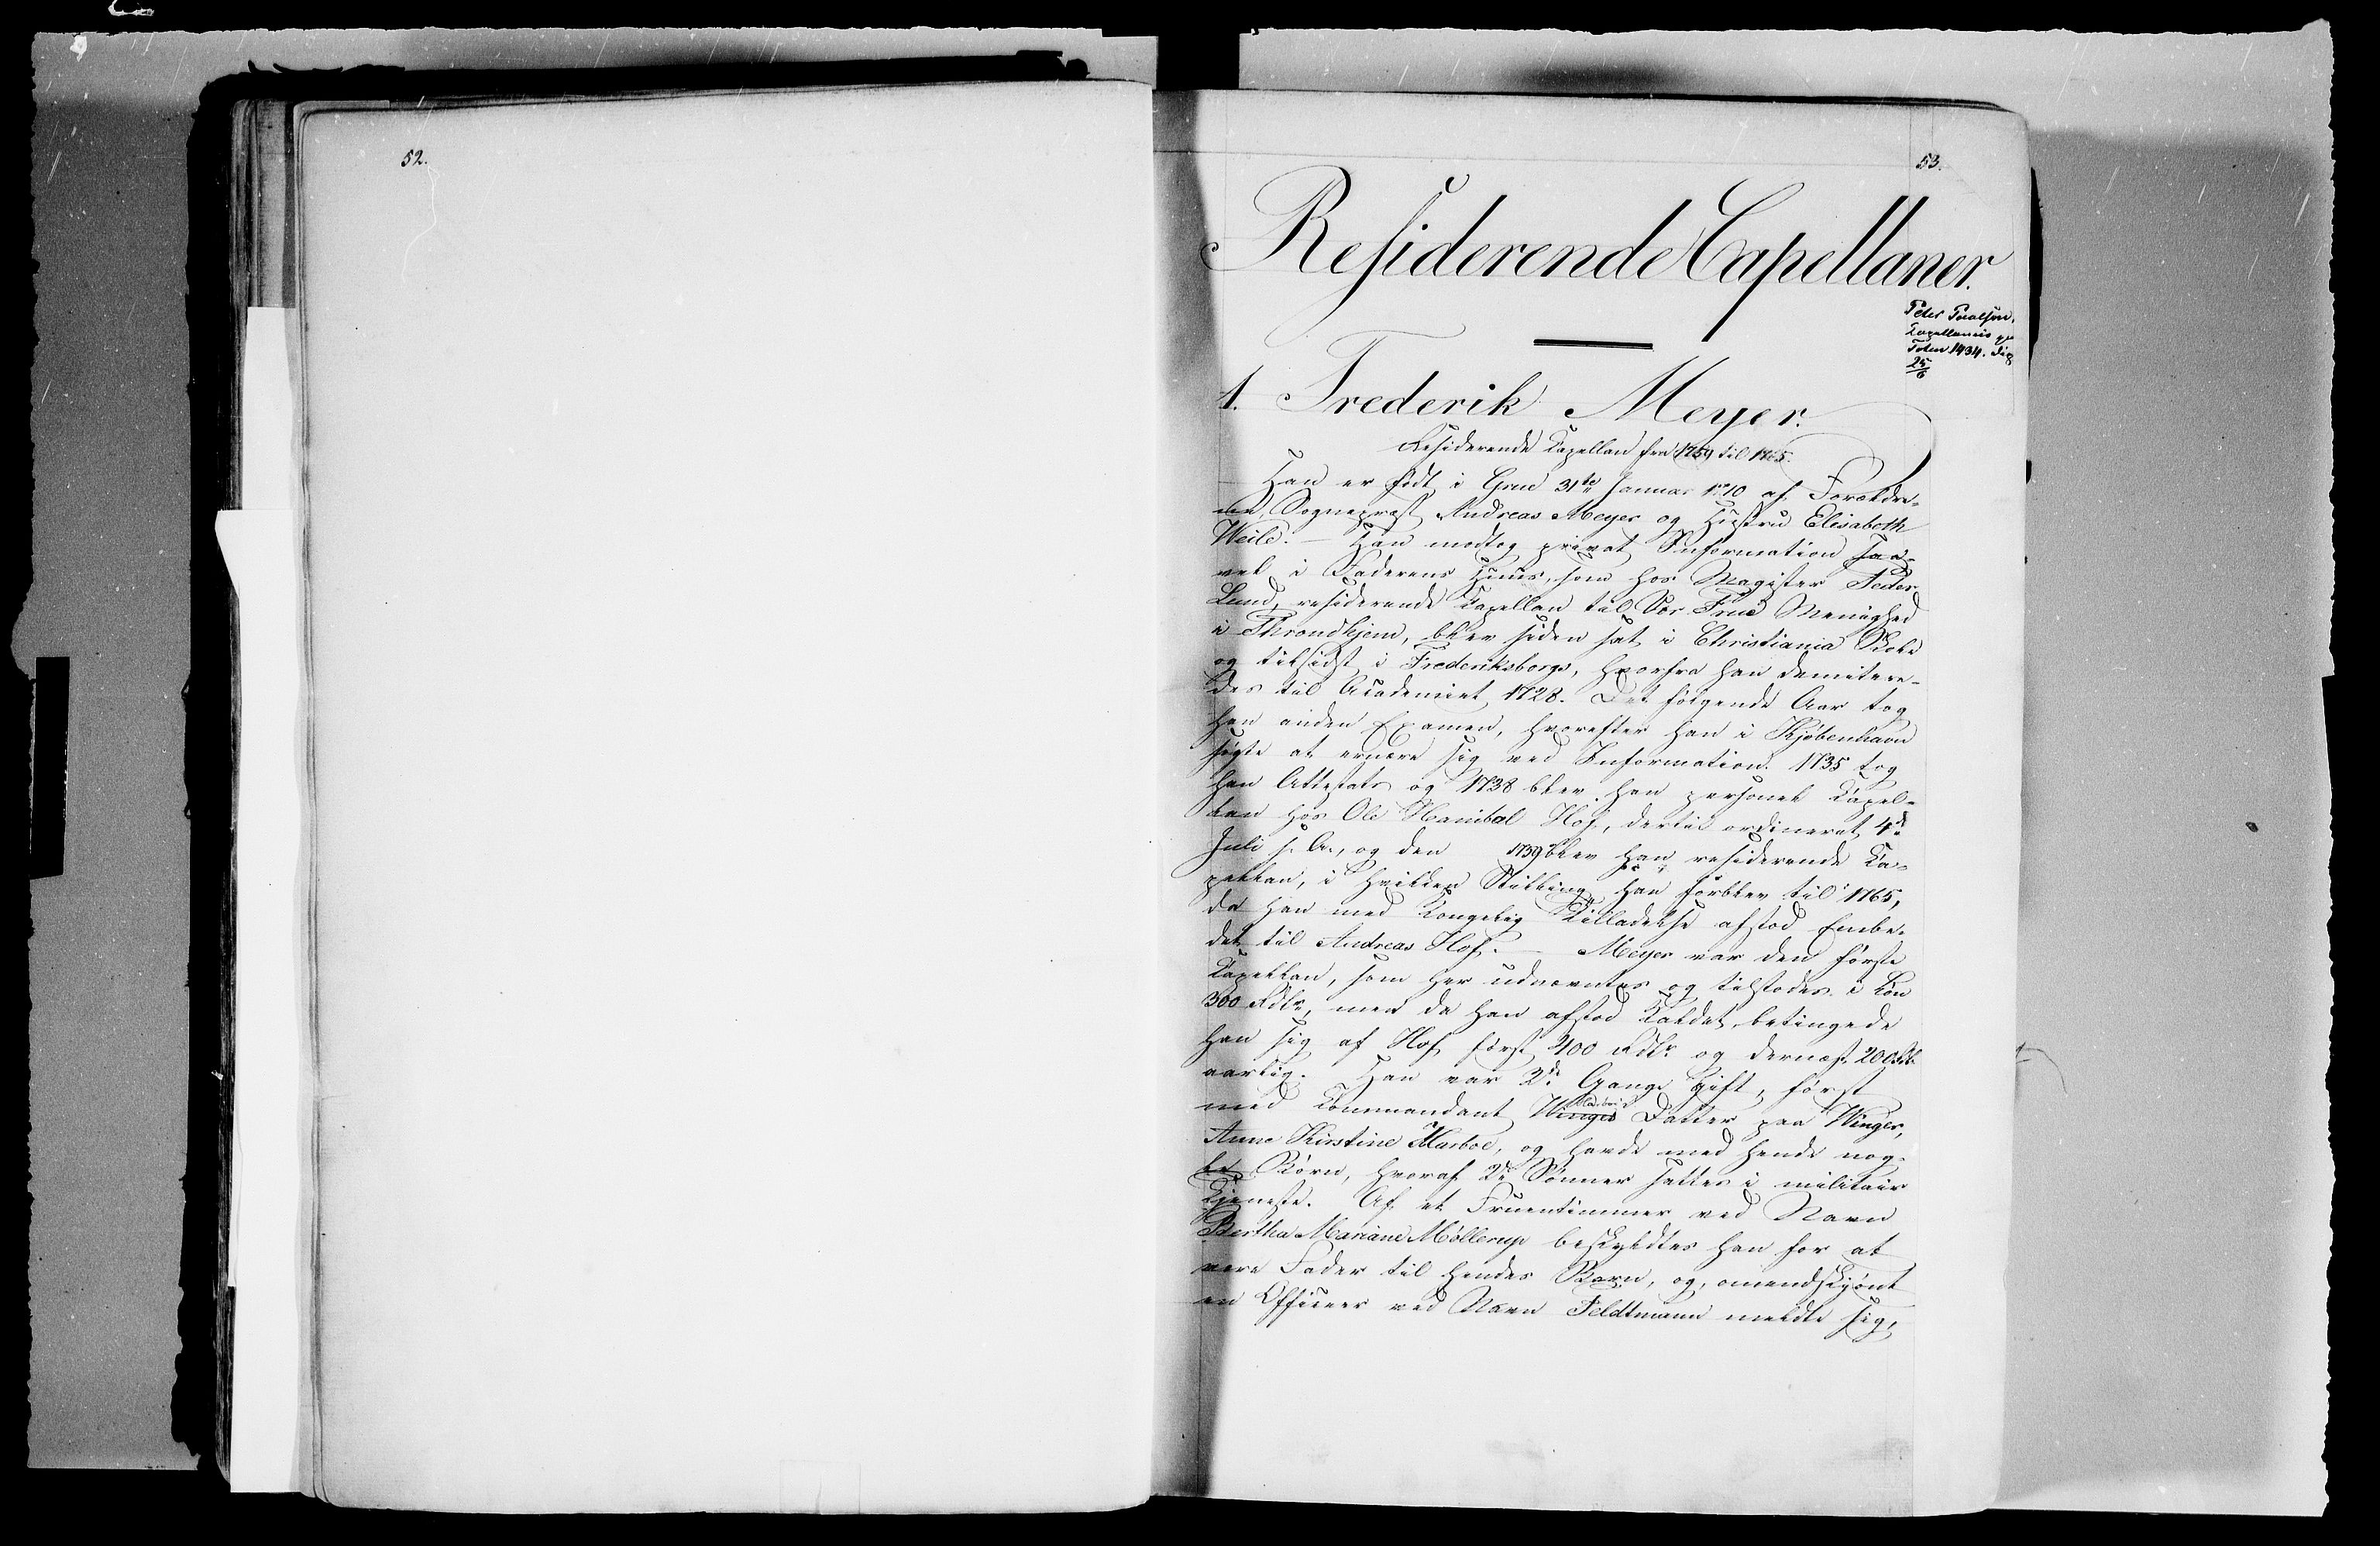 52.
53.
Residerende Capellaner.
Peter Paalssøn,
Capellanus pa
Toten 1434. Dip
25/6
1. Frederik Meyer.
Residerende Capellan fra 1759 til 1765.
Han er født i Grue 31te Januar 1710 af Forældre-
ne, Sognepræst Andreas Meyer og Hustru Elisabeth
Weile. – Han modtog privat Information saa-
vel i Faderens Huus, som hos Magister Peder
Lund, residerende Capellan til Vor Frue Menighed
i Throndhjem, blev siden sat i Christiania Skole
og tilsidst i Frederiksborgs, hvorfra han demitere-
des til Academiet 1728. Det følgende Aar tog
han anden Examen, hvorefter han i Kjøbenhavn
søgte at ernære sig ved Information. 1735 tog
han Attestats og 1738 blev han personel Capel-
lan hos Ole Hanibal Hof, dertil ordineret 4de
Juli s. A., og den 1739 blev han residerende Ca-
pellan, i hvilken Stilling han forblev til 1765,
da han med Kongelig Tilladelse afstod Embe-
det til Andreas Hof. – Meyer var den første
Capellan, som her udnævntes og tilstodes i Løn
300 Rdlr, men da han afstod Kaldet, betingede
han sig af Hof først 400 Rdlr og dernæst 200 Rdl
aarlig. Han var 2de Gange gift, først
med Commandant Winges Marboe's Datter paa Winger,
Anne Kirstine Marboe, og havde med hende nog-
le Børn, hvoraf 2de Sønner sattes i militair
Tjeneste. Af et Fruentimmer ved Navn
Bertha Mariane Møllerup beskyldtes han for at
være Fader til hendes Barn, og, omendskjønt
en Officeer ved Navn Feldtmann meldte sig,